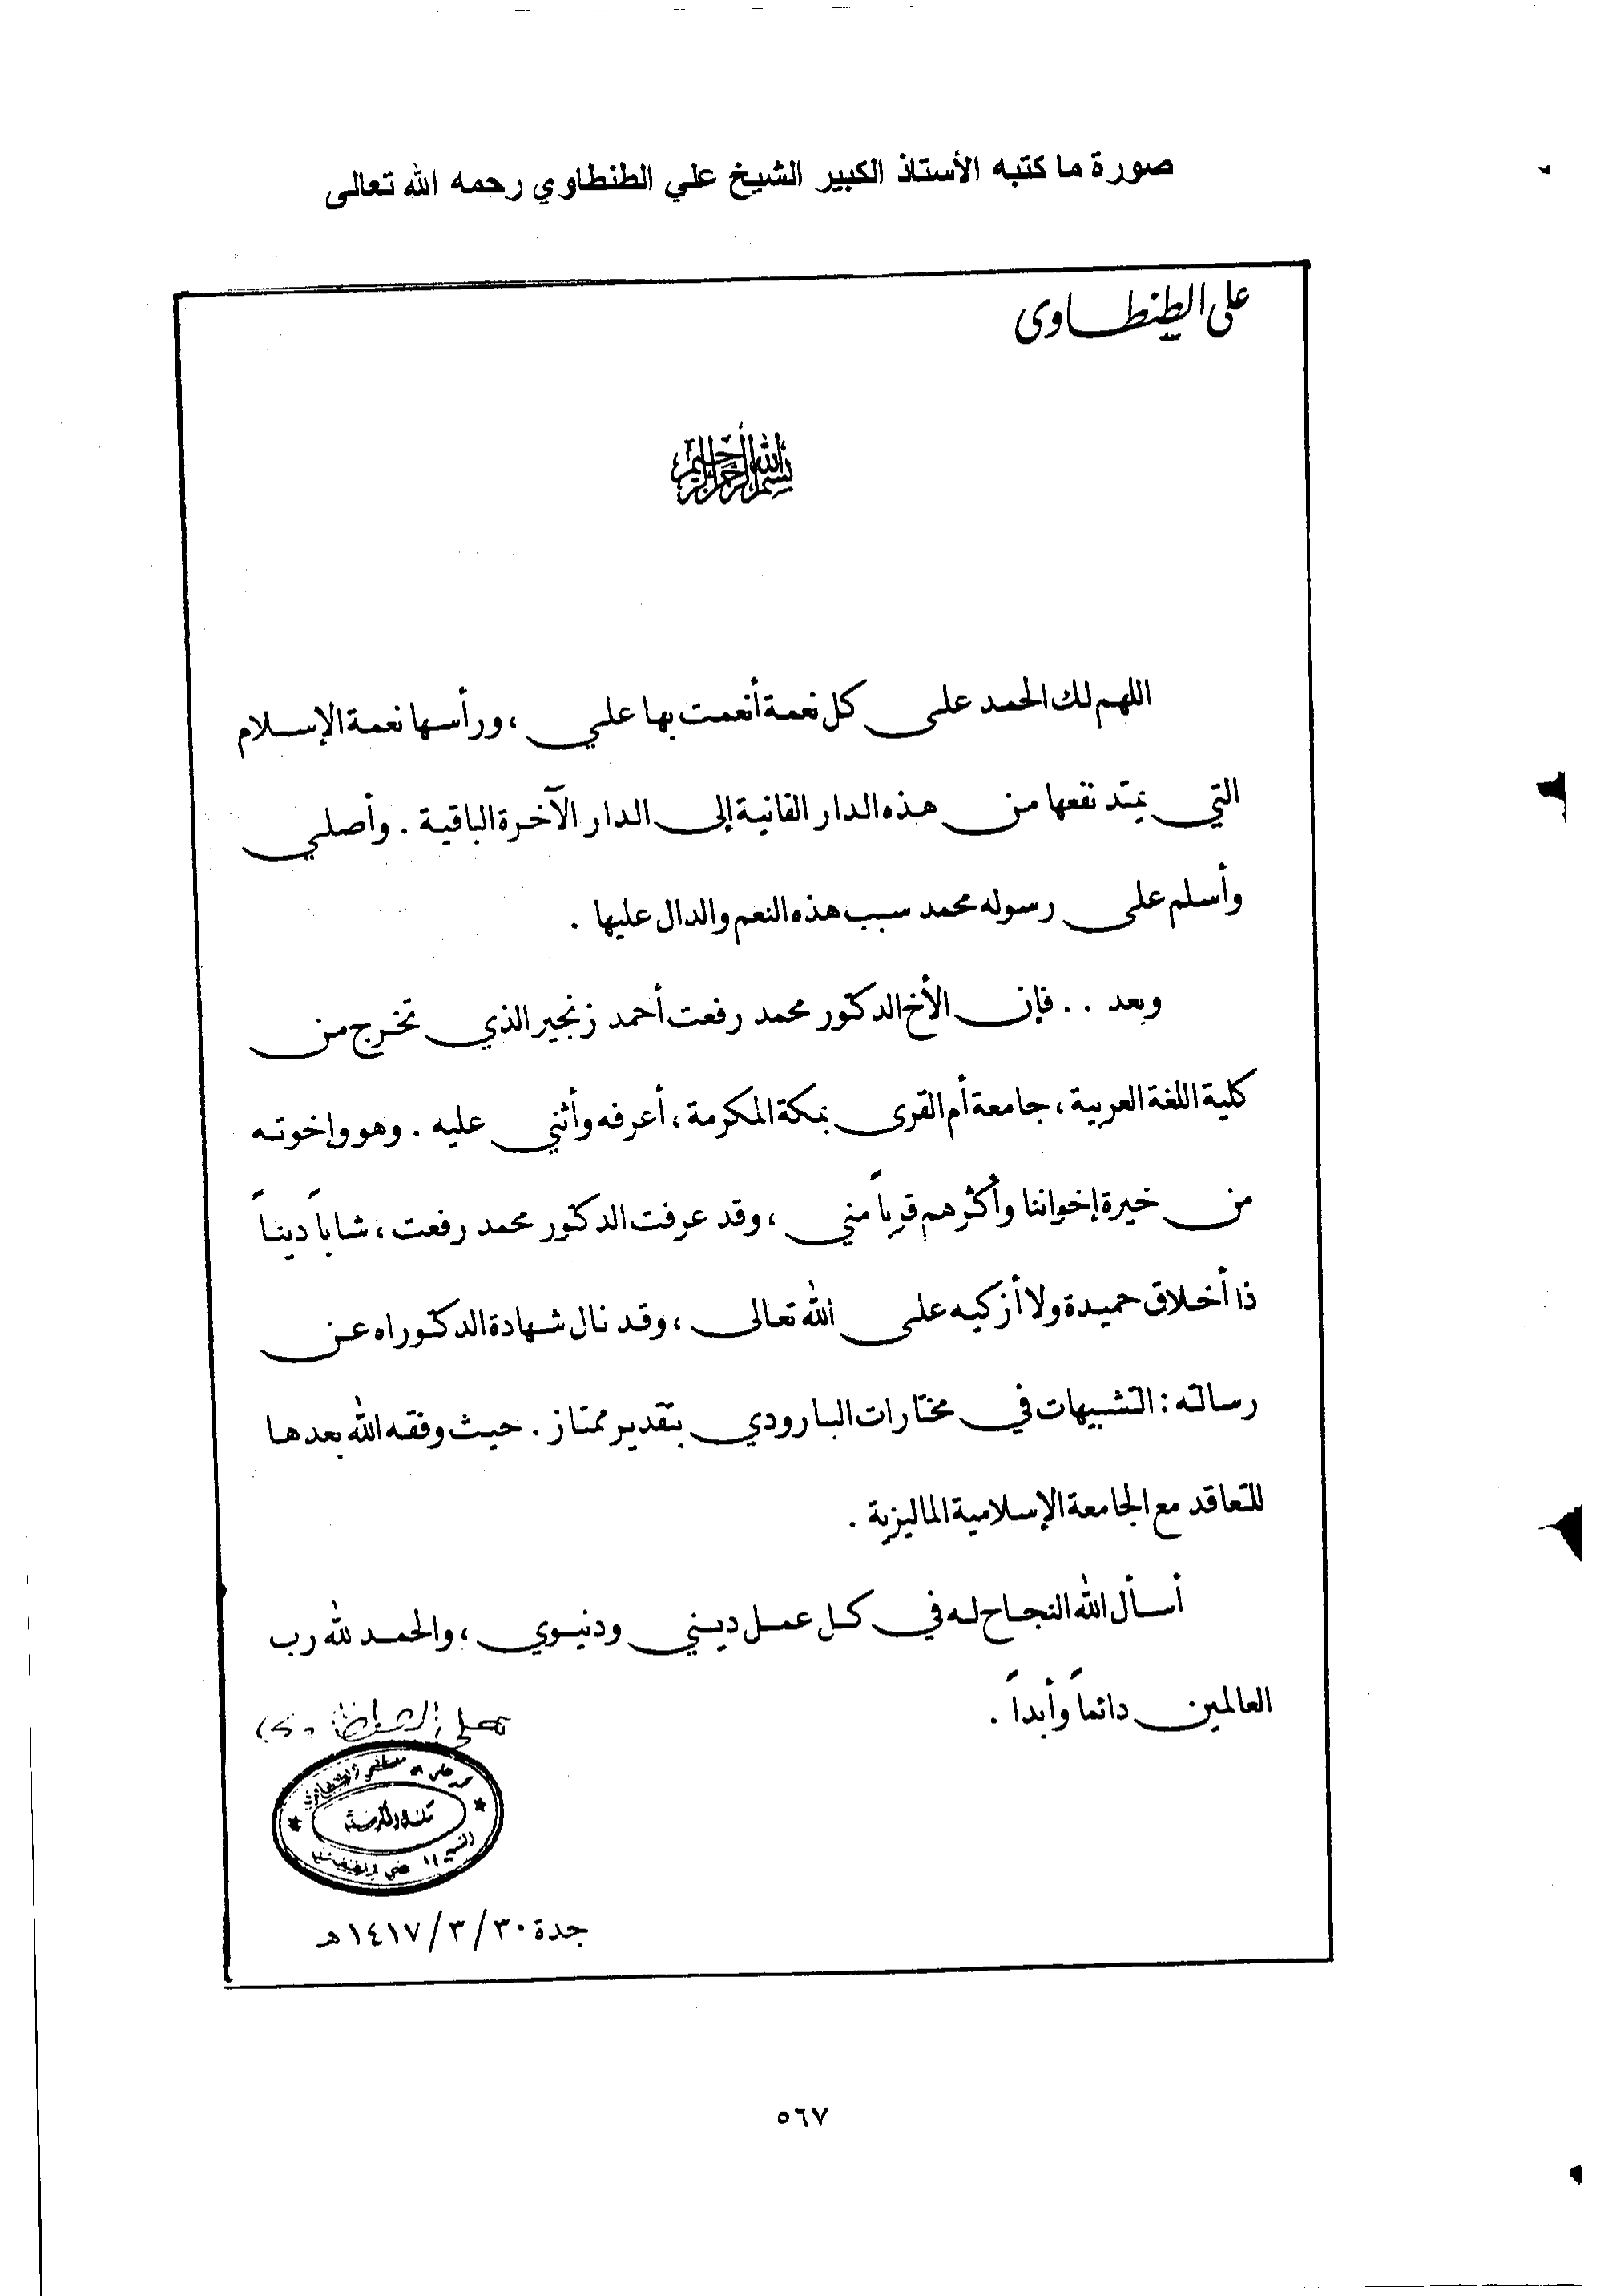 صورة ما كتبه الأستاذ الكبير الشيخ علي الطنطاوي رحمه الله تعالى
على الطنطاوى
بسم الله الرحمن الرحيم
اللهم لك الحمد على كل نعمة أنعمت بها علي ، ورأسها نعمة الإسلام
التي يمتد نفعها من هذه الدار الفانية إلى الدار الآخرة الباقية . وأصلي
وأسلم على رسوله محمد سبب هذه النعم والدال عليها .
وبعد . . فإن الأخ الدكتور محمد رفعت أحمد زنجير الذي تخرج من
كلية اللغة العربية ، جامعة أم القرى بمكة المكرمة ، أعرفه وأثني عليه . وهو وإخوته
من خيرة إخواننا وأكثرهم قرباً مني ، وقد عرفت الدكتور محمد رفعت ، شاباً ديناً
ذا أخلاق حميدة ولا أزكيه على الله تعالى ، وقد نال شهادة الدكتوراه عن
رسالته : التشبيهات في مختارات البارودي بتقدير ممتاز . حيث وفقه الله بعدها
للتعاقد مع الجامعة الإسلامية الماليزية .
أسأل الله النجاح له في كل عمل ديني ودنيوي ، والحمد لله رب
العالمين دائماً وأبداً .
علي الطنطاوي
مكة المكرمة
جدة ٣٠/٣/١٤١٧هـ
٥٦٧